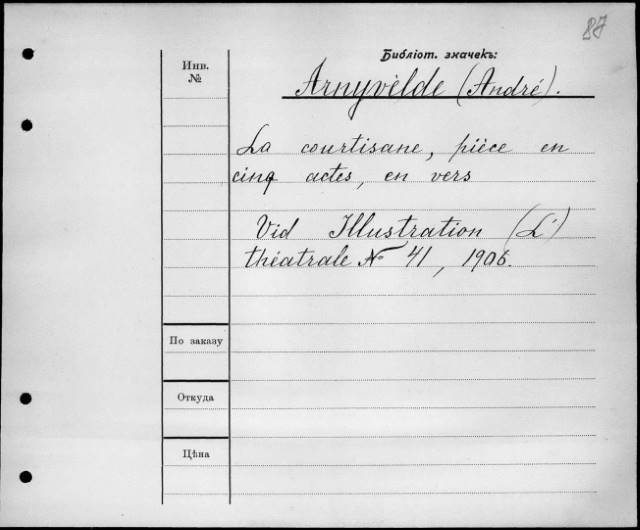 87
Библіот. значекъ:
Инв.
№
Arnyvèlde (André).
La courtisane, pièce en
cinq actes, en vers
Vid Illustration (L')
théatrale № 41, 1906.
По заказу
Откуда
Цѣна